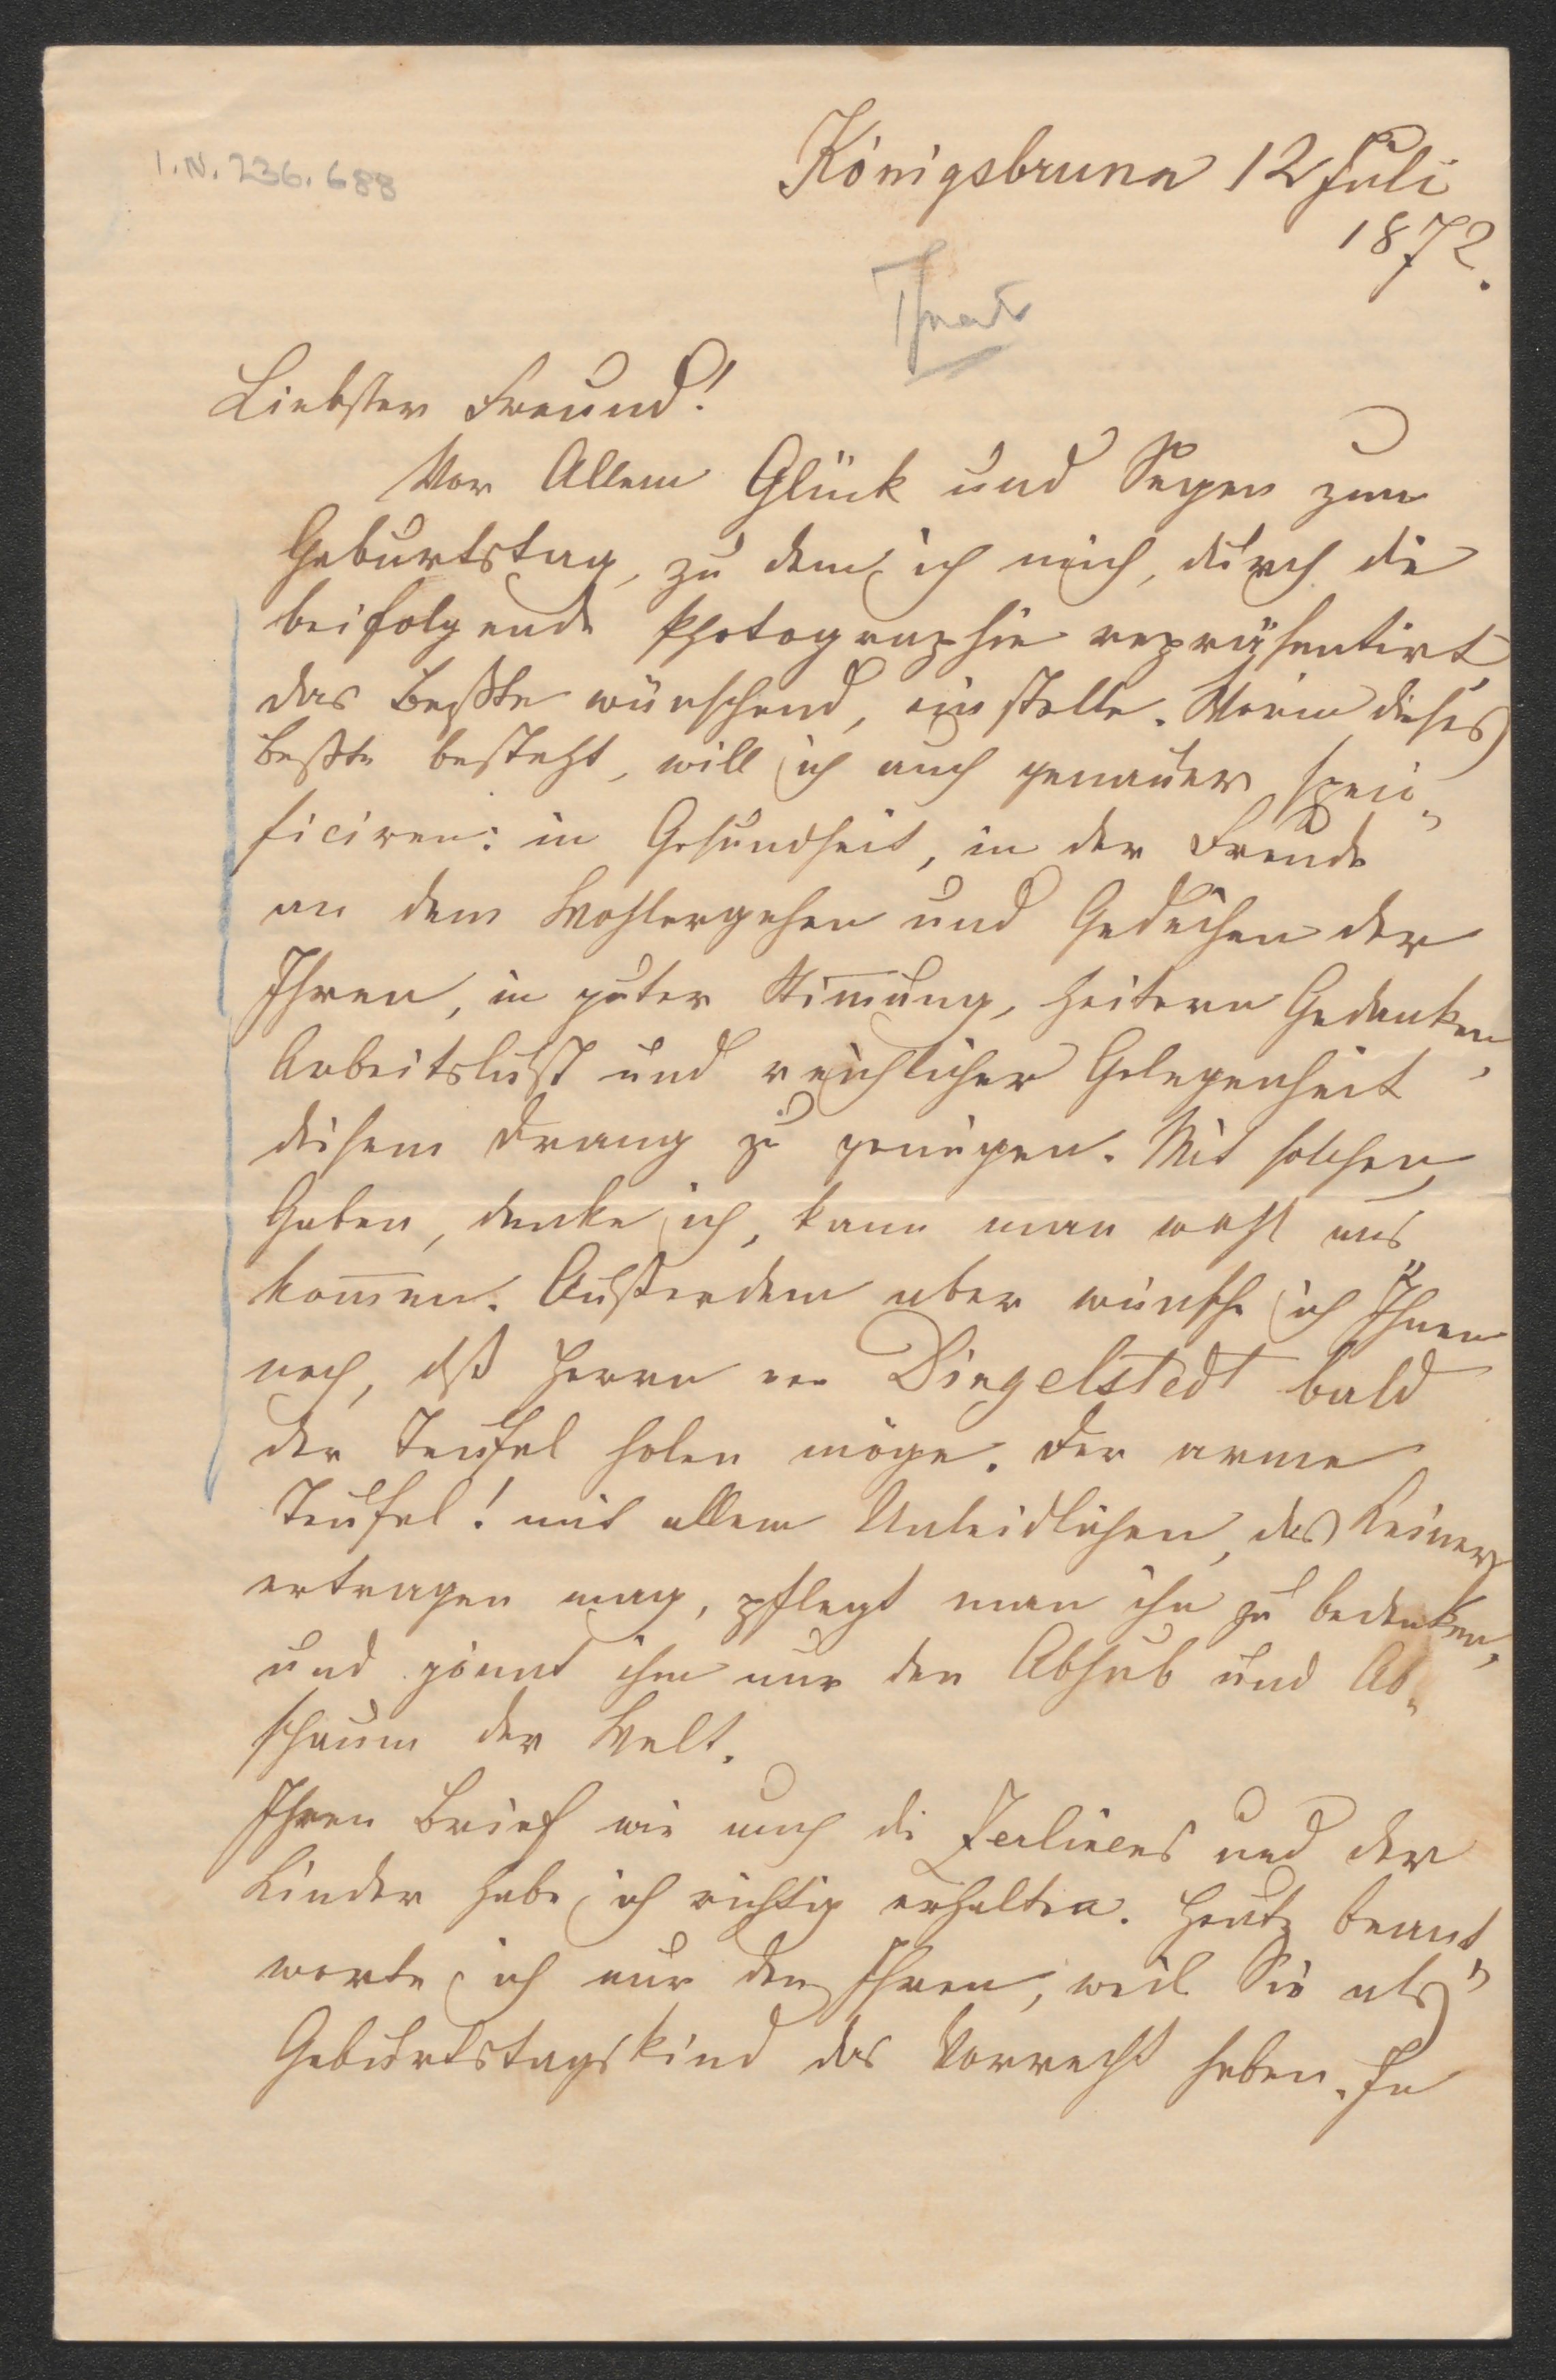 I.N. 236.688
Königsbrunn 12 Juli
1872.
Liebster Freund!
Vor Allem Glück und Segen zum
Geburtstag, zu dem ich mich, durch die
beifolgende Photographie repräsentirt,
das Beßte wünschend, einstelle. Worin dieses
Beßte besteht, will ich auch genauer speci„
ficiren: in Gesundheit, in der Freude
an dem Wohlergehen und Gedeihen der
Ihren, in guter Stim̅ung, heitern Gedanken,
Arbeitslust und reichlicher Gelegenheit
diesem Drang zu genügen. Mit solchen
Gaben, denke ich, kann man wohl aus„
kom̅en. Außerdem aber wünsche ich Ihnen
noch, dß Herrn von Dingelstedt bald
der Teufel holen möge. Der arme
Teufel! mit allem Unleidlichen, das Keiner
ertragen mag, pflegt man ihn zu bedenken,
und gönnt ihm nur den Abhub und Ab„
schaum der Welt.
Ihren Brief wie auch die Zerlinens und der
Kinder habe ich richtig erhalten. Heute beant„
worte ich nur den Ihren, weil Sie als
Geburtstagskind das Vorrecht haben. In